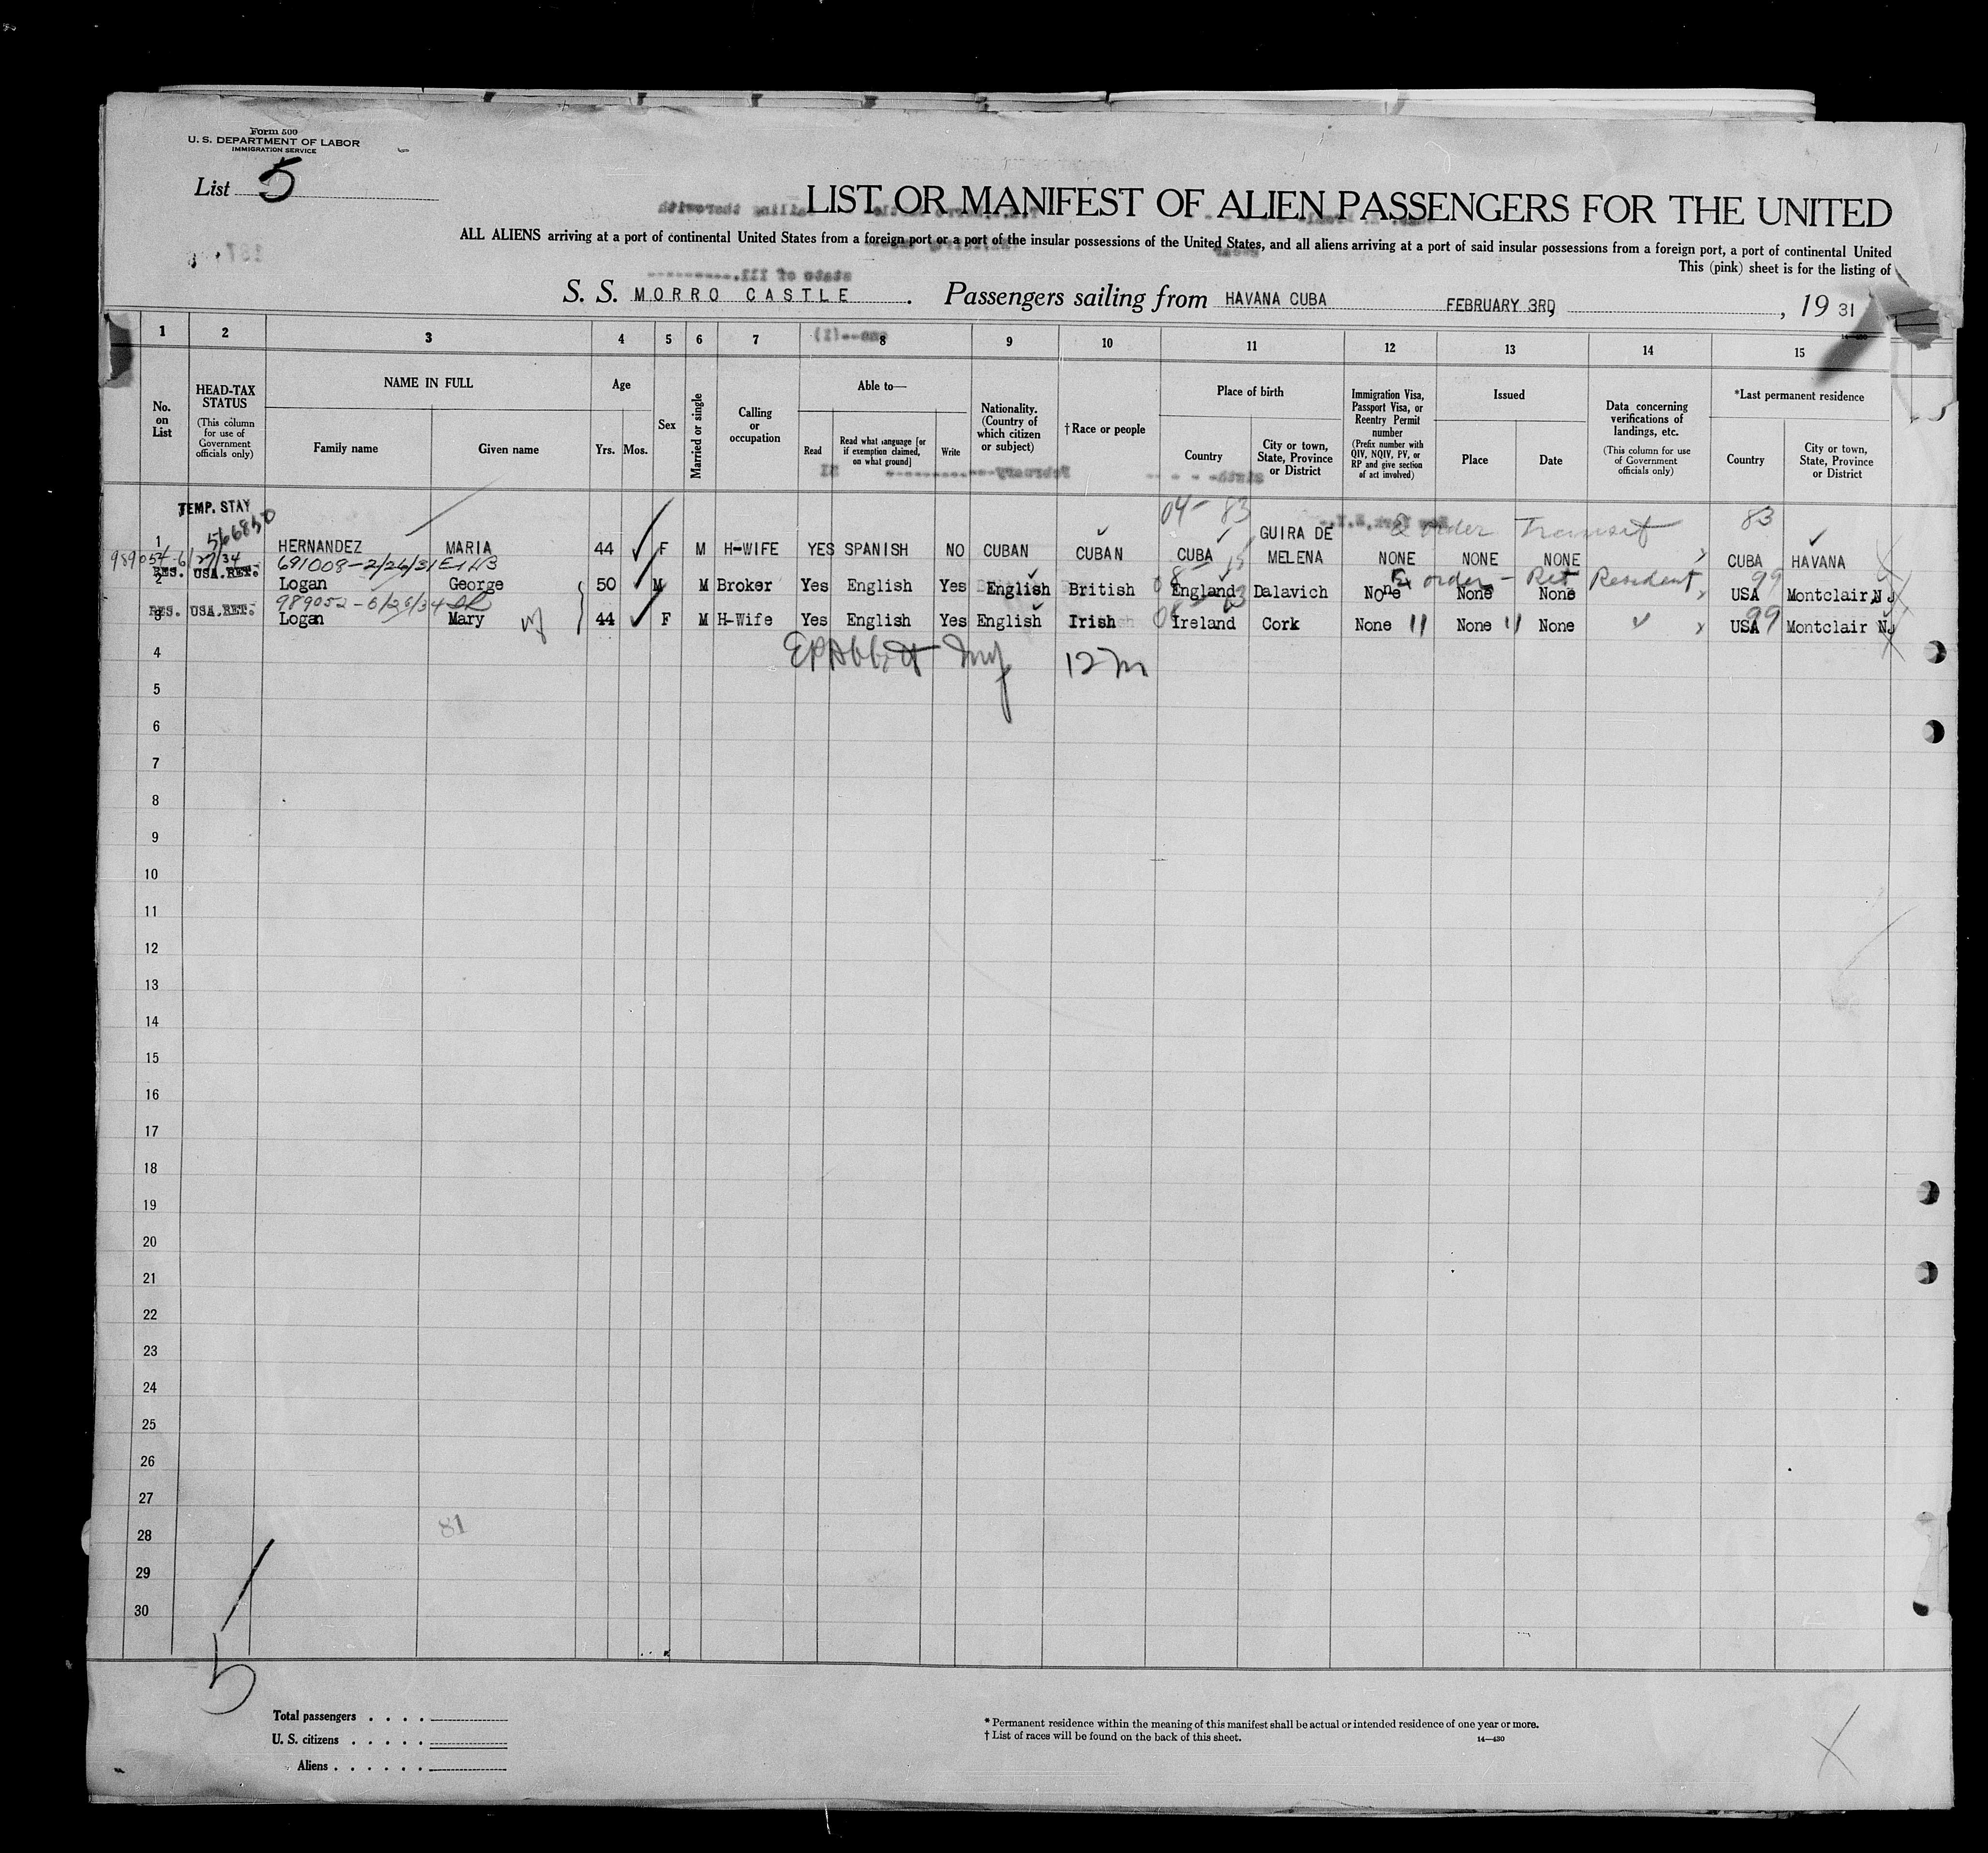 Form 500
U. S. DEPARTMENT OF LABOR
IMMIGRATION SERVICE
List 5
LIST OR MANIFEST OF ALIEN PASSENGERS FOR THE UNITED
ALL ALIENS arriving at a port of continental United States from a foreign port or a port of the insular possessions of the United States, and all aliens arriving at a port of said insular possessions from a foreign port, a port of continental United
This (pink) sheet is for the listing of
S. S. MORRO CASTLE . Passengers sailing from HAVANA CUBA FEBRUARY 3RD, , 19 31
1 2 3 4 5 6 7 8 9 10 11 12 13 14 15
No. on List
HEAD-TAX STATUS (This column for use of Government officials only)
NAME IN FULL
Family name Given name
Age
Yrs. Mos.
Sex
Married or single
Calling or occupation
Able to—
Read
Read what language [or if exemption claimed, on what ground]
Write
Nationality. (Country of which citizen or subject)
†Race or people
Place of birth
Country
City or town, State, Province or District
Immigration Visa, Passport Visa, or Reentry Permit number (Prefix number with QIV, NQIV, PV, or RP and give section of act involved)
Issued
Place Date
Data concerning verifications of landings, etc. (This column for use of Government officials only)
*Last permanent residence
Country
City or town, State, Province or District
TEMP. STAY 04- 83 order Transit 83
1 HERNANDEZ MARIA 44 F M H-WIFE YES SPANISH NO CUBAN CUBAN CUBA GUIRA DE MELENA NONE NONE NONE CUBA HAVANA
691008-2/26/31
2 RES. USA.RET. Logan George 50 M M Broker Yes English Yes English British England Dalavich None None None order - Ret Resident 99 USA Montclair NJ
989052-6/26/34
3 RES. USA.RET. Logan Mary 44 F M H-Wife Yes English Yes English Irish Ireland Cork None None None 99 USA Montclair NJ
4 12 m
5
6
7
8
9
10
11
12
13
14
15
16
17
18
19
20
21
22
23
24
25
26
27
28 81
29
30
5
Total passengers . . . .
U. S. citizens . . . . .
Aliens . . . . . .
* Permanent residence within the meaning of this manifest shall be actual or intended residence of one year or more.
† List of races will be found on the back of this sheet. 14—430